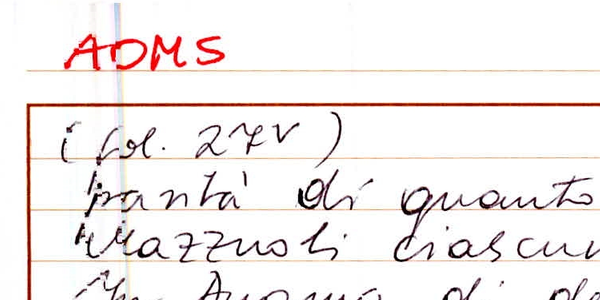 ADMS
(fol. 27v)
santà di quanto
Mazzuoli ciascun
di